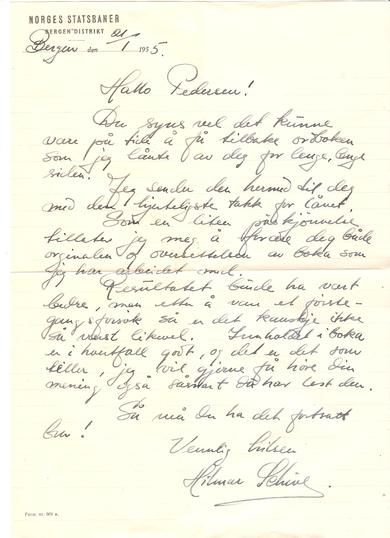 NORGES STATSBANER
BERGEN DISTRIKT
Bergen den 21/1 1935.
Hallo Pedersen!
Du syns vel det kunne
være på tide å få tilbake ordboken
som jeg lånte av deg for lenge, lenge
siden.
Jeg sender den hermed til deg
med den hjerteligste takk for lånet.
Som en liten påskjønnelse
tillater jeg meg å forære deg både
orginalen og oversettelsen av boka som
jeg har arbeidet med.
Resultatet burde ha vært
bedre, men etter å være et første-
gangsforsøk så er det kanskje ikke
så verst likevel. Innholdet i boka
er i hvertfall godt, og det er det som
teller, jeg vil gjerne få høre din
mening også såsnart du har lest den.
Så må Du ha det fortsatt
bra!
Vennlig hilsen
Hilmar Schive.